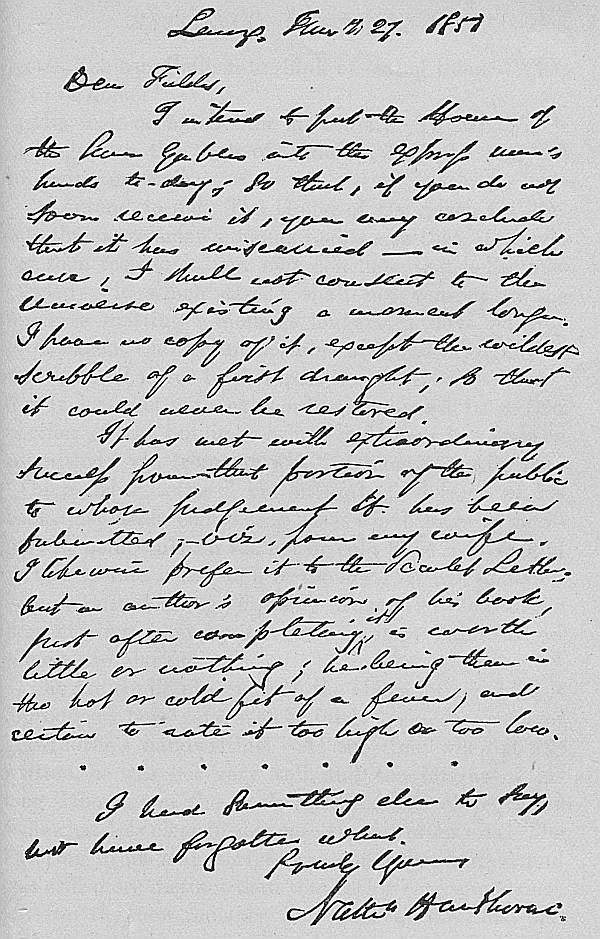 Lenox, Jan 27. 1851
Dear Fields,
I intend to put the House of
the Seven Gables into the express man's
hands to-day; so that, if you do not
soon receive it, you may conclude
that it has miscarried — in which
case, I shall not consent to the
universe existing a moment longer.
I have no copy of it, except the wildest
scribble of a first draught; so that
it could never be restored.
It has met with extraordinary
success from that portion of the public
to whose judgement it has been
submitted; — viz, from my wife.
I likewise prefer it to the Scarlet Letter;
but an author's opinion of his book,
just after completing it, is worth
little or nothing; he being then in
the hot or cold fit of a fever, and
certain to rate it too high or too low.
. . . . . . .
I had something else to say,
but have forgotten what.
Truly Yours
Nathl Hawthorne.